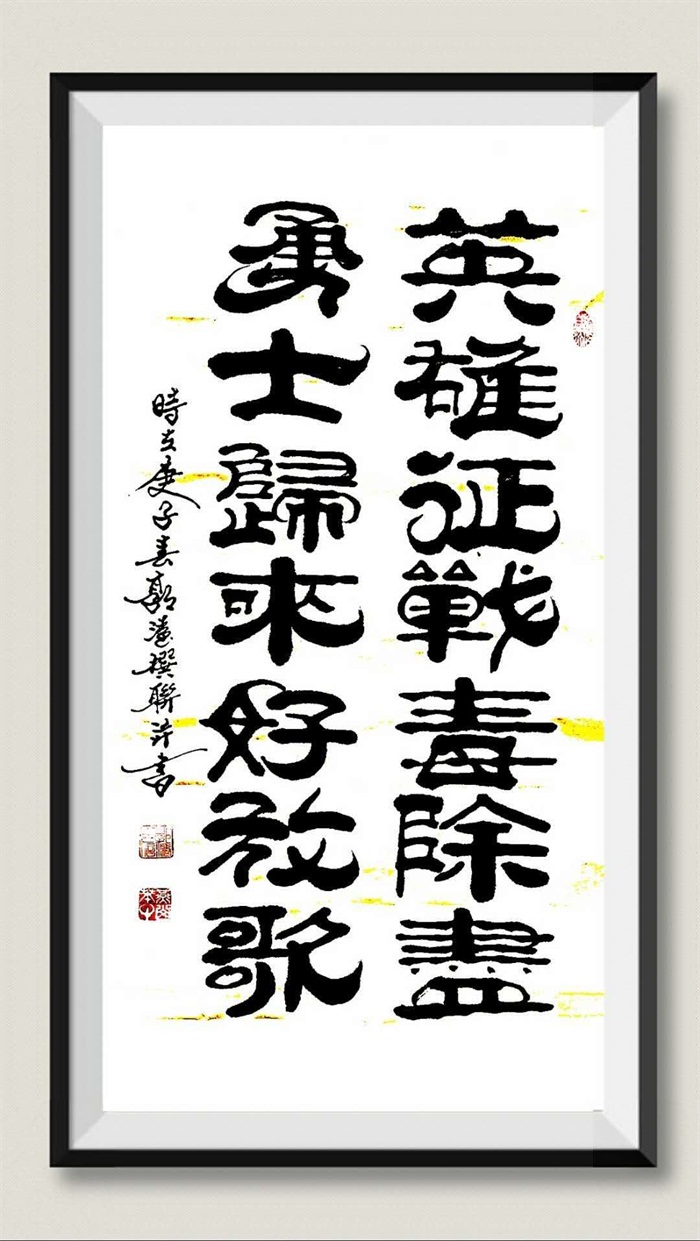 英雄征戰毒除盡
勇士歸來好放歌
時在庚子春郭蓮撰聯並書